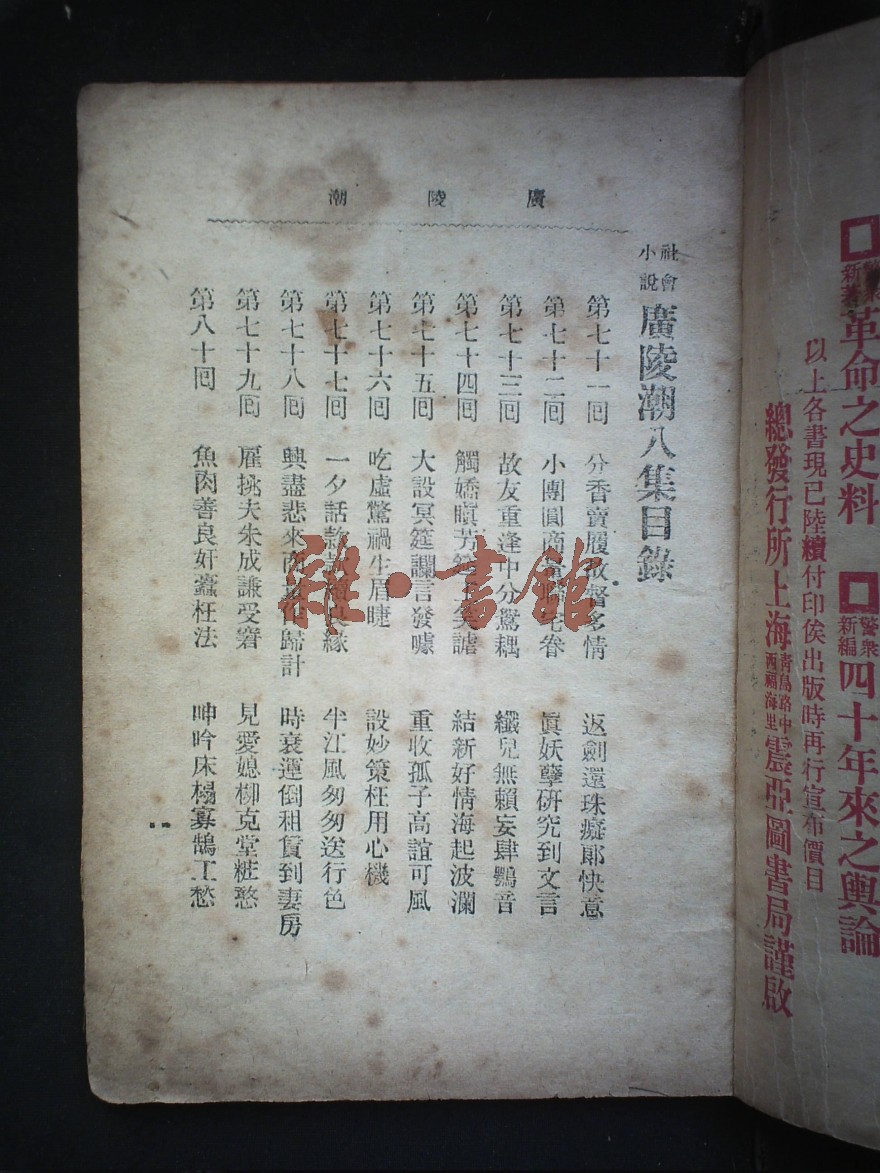 廣陵潮
社會小說 廣陵潮八集目錄
第七十一回 分香賣履故督多情 返劍還珠癡郎快意
第七十二回 小團圓商量 眞妖孽研究到文言
第七十三回 故友重逢中分驚耦 纖兒無賴妄肆鴞音
第七十四回 觸嬌瞋芳筵 笑謔 結新好情海起波瀾
第七十五回 大設冥筵讕言發噱 重收孤子高誼可風
第七十六回 吃虛驚禍生眉睫 設妙策枉用心機
第七十七回 一夕話款款 緣 半江風匆匆送行色
第七十八回 興盡悲來商量作歸計 時衰運倒租賃到妻房
第七十九回 雇挑夫朱成謙受窘 見愛媳柳克堂粧憨
第八十回 魚肉善良奸蠹枉法 呻吟床榻寡鵠工愁
新著 革命之史料
警衆新編 四十年來之輿論
以上各書現已陸續付印俟出版時再行宣布價目
總發行所上海青島路中西福海里震亞圖書局謹啟
雜·書館